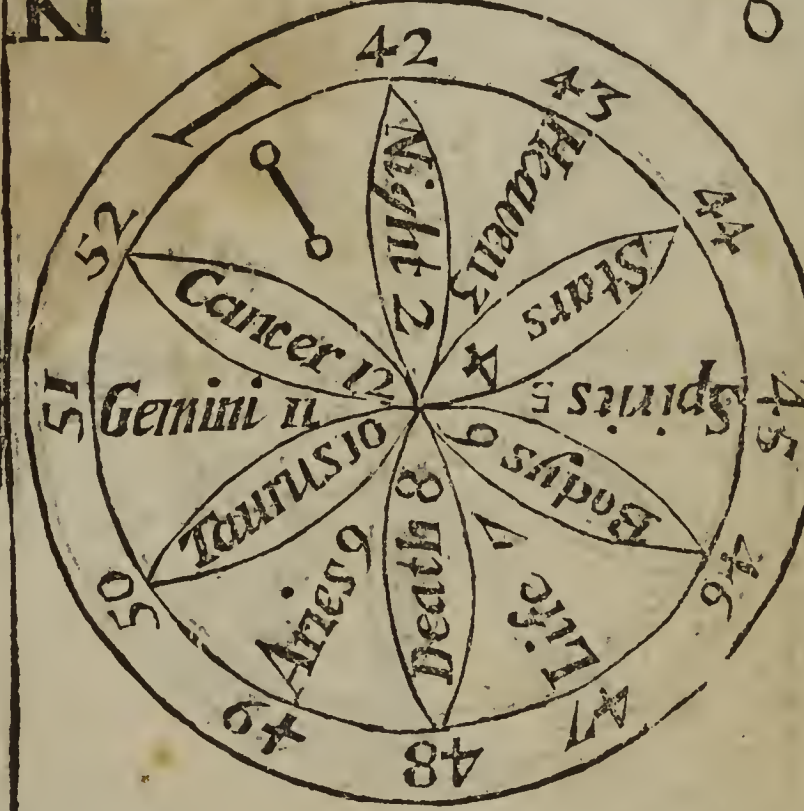 N
O
I
42
43
44
45
46
47
48
49
50
51
52
Night 2
Heavens
Stars 4
Spirits 5
Bodys 6
Life 7
Death 8
Aries 9
Taurus 10
Gemini 11
Cancer 12